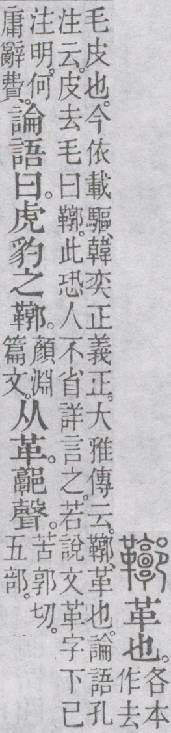 鞹革也。各本
作去
毛皮也。今依載驅韓奕正義正。大雅傳云。鞹革也。論語孔
注云。皮去毛曰鞹。此恐人不省詳言之。若說文革字下已
注明。何
庸辭費。論語曰。虎豹之鞹。顏淵
篇文。从革。𩫏聲。苦郭切。
五部。